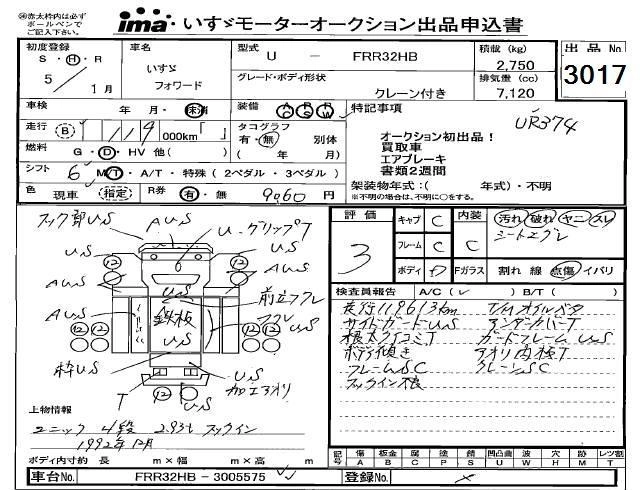 ㊟赤太枠内は必ず
ボールペンで
ご記入下さい。
ima いすゞモーターオークション出品申込書
初度登録 車名 型式 U - FRR32HB 積載 (kg) 出品No
S・H・R いすゞ 2,750
5 / 1月 フォワード グレード・ボディ形状 排気量 (cc) 3017
クレーン付き 7,120
車検 年 月・抹消 装備 AC PS PW 特記事項
走行 B 119 000km「 」 タコグラフ UR374
有・無 別体
オークション初出品！
買取車
燃料 G・D・HV 他( ) ( 年 月)
エアブレーキ
書類2週間
シフト 6 MT・A/T・特殊 ( 2ペダル・3ペダル ) 架装物年式:( 年式)・不明
色 現車 指定 R券 有・無 9060 円 ※不明の場合は、不明に○をする。
フック部US AUS U・グリップT
US 12 12 US
AUS AUS
AUS US 鉄板 US
枠US US
T US 加工アオリ
12 US
評価 3 キャブ C 内装 C 汚れ 破れ ヤニ スレ
フレーム C シートエグレ
ボディ D Fガラス 割れ 線 点傷 イバリ
検査員報告 A/C ( ✓ ) B/T ( )
走行119613km T/Mオイルバタ
サイドガードUS アンダーカバーT
根太 ガードフレーム US
ボディ傾き アオリ内板T
フレームSC クレーンSC
フックイン不良
上物情報
ユニック 4段 2.93t フックイン
1992年12月
ボディ内寸約 長 m×幅 m×高 m
記号 傷 板金 腐 塗 錆 凹凸曲 波 穴 跡 レツ割
A B C P S U W H M T
車台No. FRR32HB - 3005575 登録No.